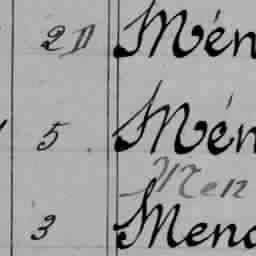 2D Mén
5 Mén
Men
3 Mend